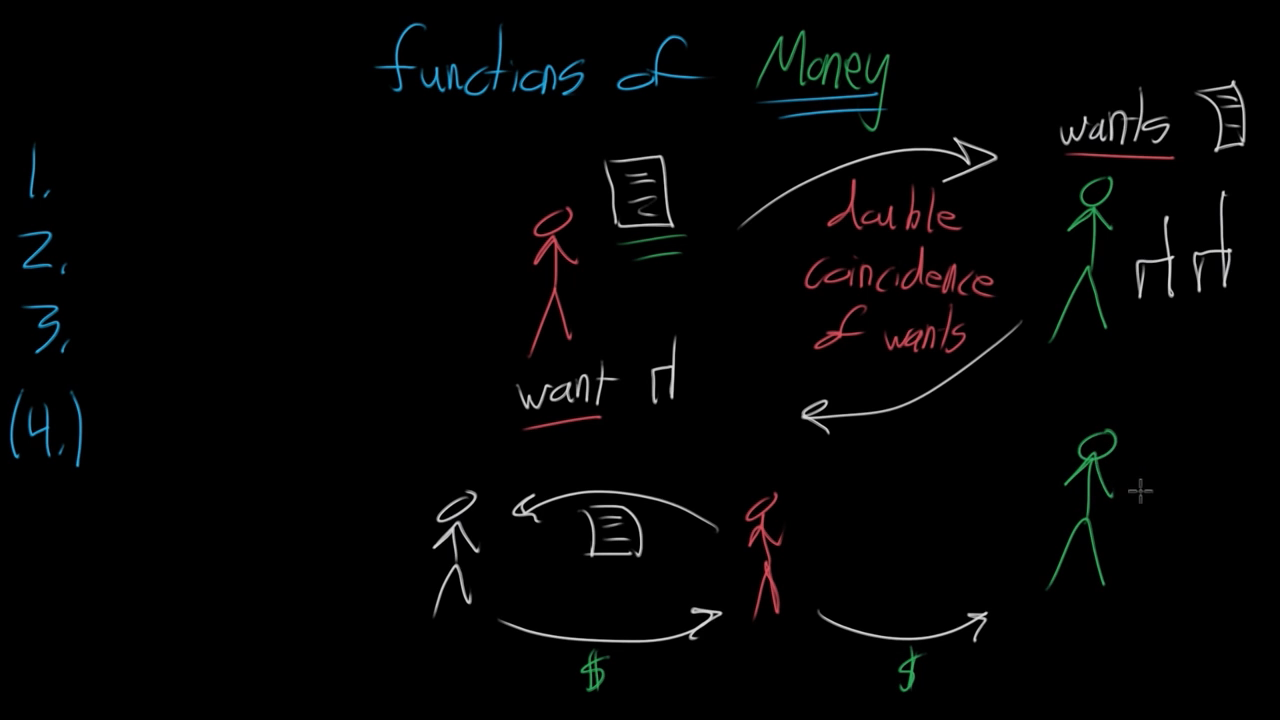 functions of Money
wants
1.
2.
3.
(4.)
double
coincidence
of wants
want
$
$